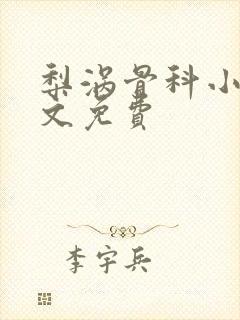 梨涡骨科小
文免費
李宇兵